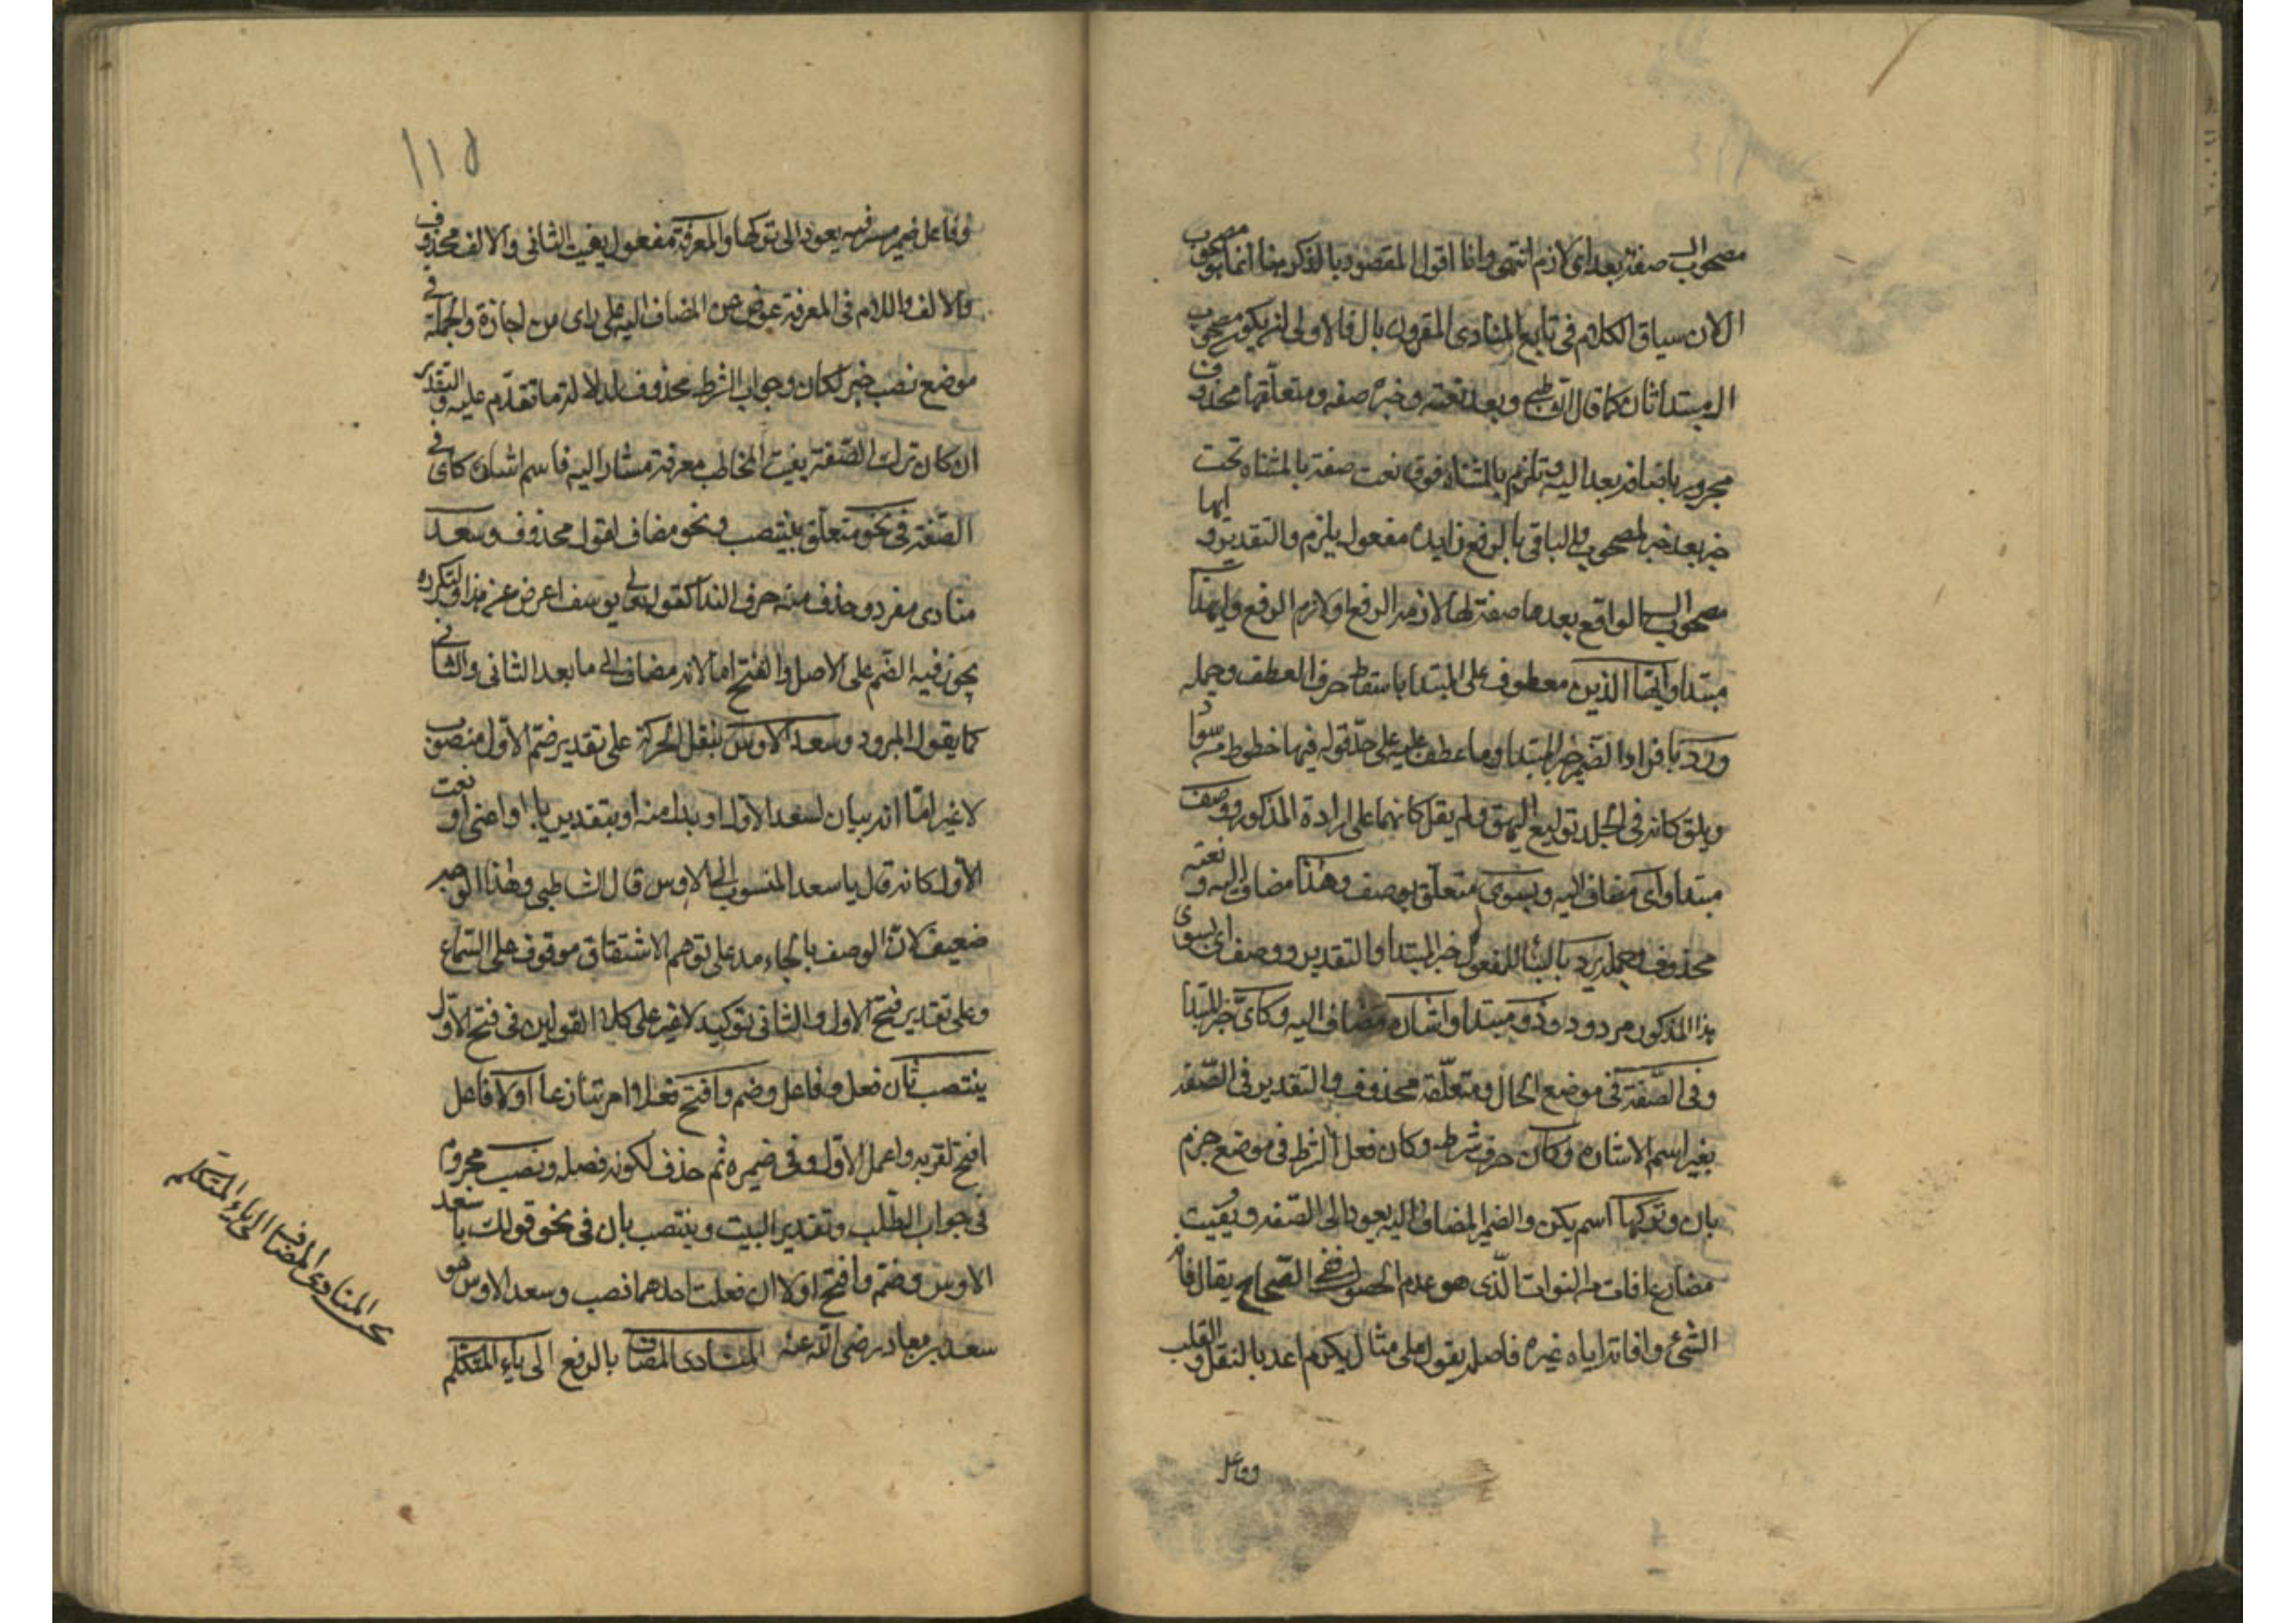 مصحوب ال صفة بعد اى لازم انتهى وانا اقول المقصود بالذكر هنا انما هو مصحوب
ال لان سياق الكلام فى تابع المنادى المقرون بال فالاولى ان يكون مصحوب
ال مبتدأ ثان كما قال الشاطبى وبعد نعته وخبره صفه ومتعلقها محذوف
مجرور باضافة بعد اليه وتلزم بالمثناة فوق نعت صفة بالمثناه تحت
خبر بعد خبر لمصحوب والباقى بالرفع زايده مفعول يلزم والتقدير وايها
مصحوب ال الواقع بعدها صفة لها لازمة الرفع او لازم الرفع وايهذا
مبتدا وايها الذين معطوف على المبتدا باسقاط حرف العطف وجمله
ورد بافراد الضمير خبر المبتدا وما عطف عليه على حد قوله فيها خطوط من سواد
وبلق كانه فى الجلد توليع البهق ولم يقل كانهما على ارادة المذكور ووصف
مبتدا واى مضاف اليه وبسوى متعلق بوصف وهذا مضاف اليه ونعته
محذوف وجملة يرد بالبنا للمفعول خبر المبتدا والتقدير ووصف اى بسوى
هذا المذكور مردود وذو مبتدا واشاره مضاف اليه وكاى خبر المبتدا
وفى الصفة فى موضع الحال ومتعلقه محذوف والتقدير فى الصفة
بغير اسم الاشاره وكان حرف شرط وكان فعل الشرط فى موضع جزم
بان وتركها اسم يكن والضمير المضاف اليه يعود الى الصفه ويفيت
مضارع افات من الفوات الذى هو عدم الحصول ففى الصحاح يقال فاته
الشئ وافاته اياه غيره فاصله يفوت على مثال يكرم اعد بالنقل والقلب
وفاعل
١١٥
وفاعل ضمير مستتر فيه يعود الى تركها والمعرفة مفعول يفيت الثانى والاول محذوف
والالف واللام فى المعرفة عوض من المضاف اليه على راى من اجازة والجملة فى
موضع نصب خبر لكان وجواب الشرط محذوف لدلالة ما تقدم عليه والتقدير
ان كان ترك الصفة يفيت المخاطب معرفة مشار اليه فاسم اشاره كاى فى
الصفة فى نحو متعلق بينتصب ونحو مضاف لقول محذوف وسعد
منادى مفرد وحذف منه حرف الندا كقوله تعالى يوسف اعرض عن هذا ولتكرره
يجوز فيه الضم على الاصل والفتح اما لانه مضاف الى ما بعد الثانى والثانى
كما يقول المبرد وسعد الاوس بنقل الحركة على تقدير ضم الاول منصوب
لا غير اما انه بيان لسعد الاول او بدل منه او بتقدير يا او اعنى او نعت
الاول كانه قال يا سعد المنسوب الى الاوس قال الشاطبى وهذا الوجه
ضعيف لان الوصف بالجامد على توهم الاشتقاق موقوف على السماع
وعلى تقدير فتح الاول والثانى توكيد لا غير على كلا القولين فى فتح الاول
ينتصب ثان فعل وفاعل وضم وافتح فعلا امر تنازعا اولا فاعل
افتح لقربه واعمل الاول وفى ضميره ثم حذف لكونه فضله ونصب مجزوم
فى جواب الطلب وتقدير البيت وينتصب بان فى نحو قولك يا سعد
الاوس وضم وافتح اولا ان فعلت احدهما نصب وسعد الاوس هو
سعد بن معاذ رضى الله عنه المنادى المضاف بالرفع الى ياء المتكلم
المنادى المضاف الى ياء المتكلم